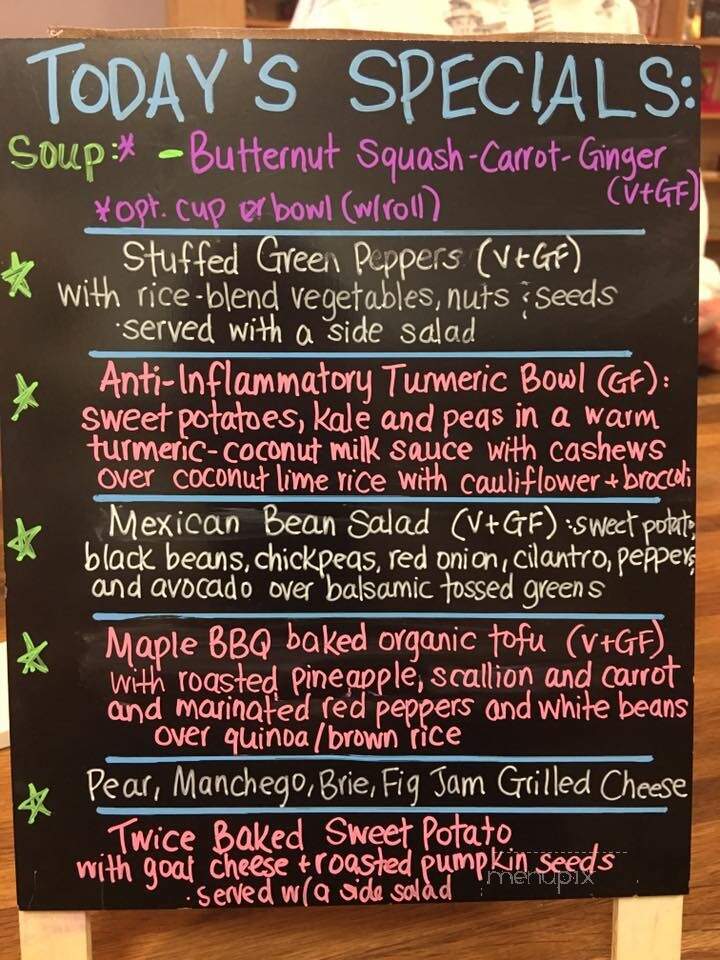 TODAY'S SPECIALS:
Soup:* - Butternut Squash-Carrot-Ginger
(V+GF)
*opt. cup or bowl (w/roll)
Stuffed Green Peppers (V+GF)
with rice-blend vegetables, nuts & seeds
·served with a side salad
Anti-Inflammatory Turmeric Bowl (GF):
sweet potatoes, kale and peas in a warm
turmeric-coconut milk sauce with cashews
over coconut lime rice with cauliflower + broccoli
Mexican Bean Salad (V+GF): sweet potato,
black beans, chickpeas, red onion, cilantro, peppers,
and avocado over balsamic tossed greens
Maple BBQ baked organic tofu (V+GF)
with roasted pineapple, scallion and carrot
and marinated red peppers and white beans
over quinoa/brown rice
Pear, Manchego, Brie, Fig Jam Grilled Cheese
Twice Baked Sweet Potato
with goat cheese + roasted pumpkin seeds
·served w/a side salad
menupix